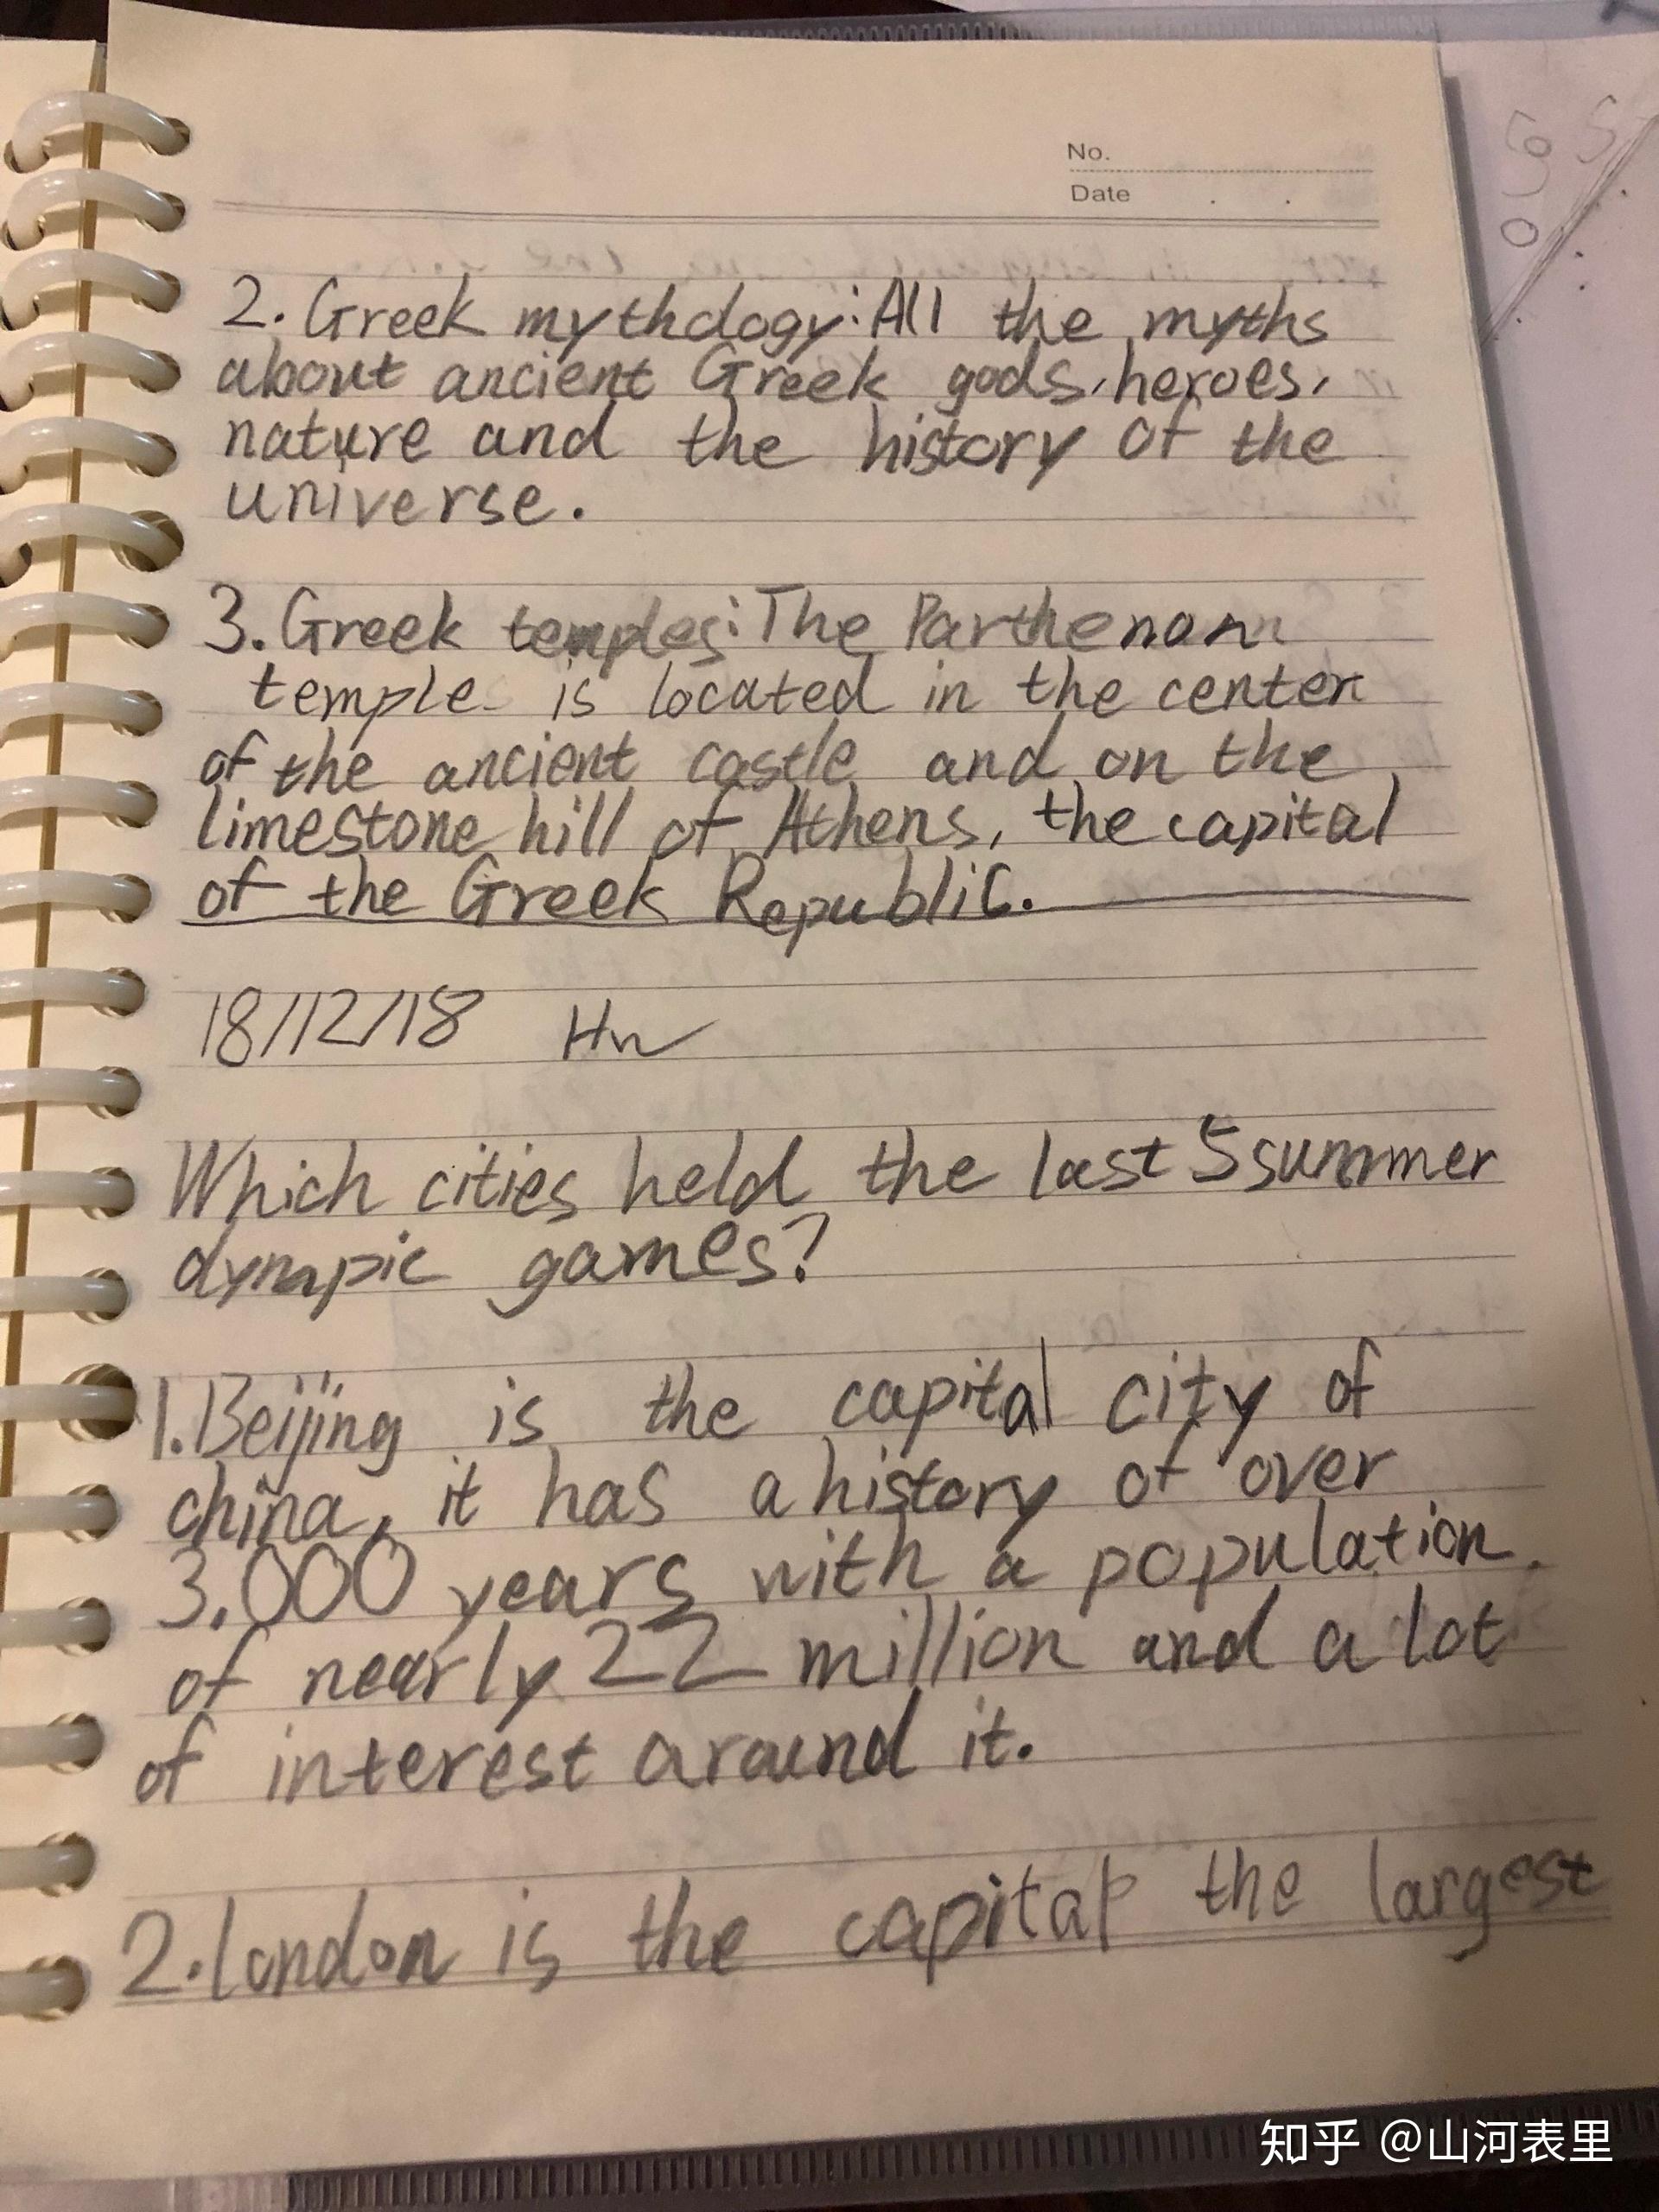 No.
Date . .
2. Greek mythology: All the myths
about ancient Greek gods, heroes,
nature and the history of the
universe.
3. Greek temples: The Parthenon
temple is located in the center
of the ancient castle and on the
limestone hill of Athens, the capital
of the Greek Republic.
18/12/18 Hw
Which cities held the last 5 summer
olympic games?
1. Beijing is the capital city of
china, it has a history of over
3,000 years with a population
of nearly 22 million and a lot
of interest around it.
2. london is the capital the largest
知乎 @山河表里